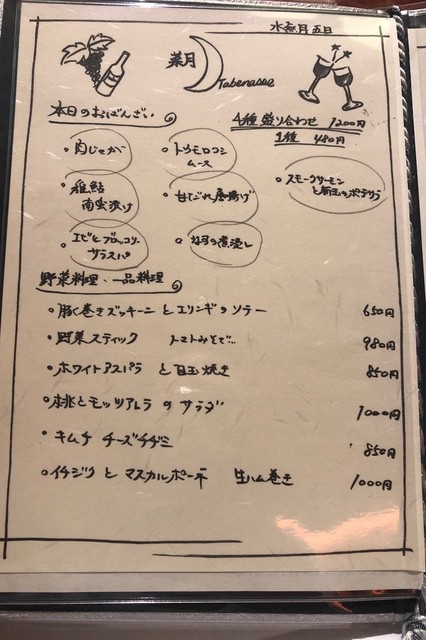 水無月五日
菜月
Tabenasee
本日のおばんざい
4種盛り合わせ 1200円
1種 480円
・肉じゃが
・トウモロコシ
ムース
・スモークサーモン
と新玉のポテサラ
・稚鮎
南蛮漬け
・甘
唐揚げ
・エビとブロッコリー
サラスパ
の煮浸し
野菜料理・一品料理
・豚く巻きズッキーニとエリンギのソテー 650円
・野菜スティック トマトみそで… 980円
・ホワイトアスパラ と目玉焼き 850円
・桃とモッツアレラのサラダ 1000円
・キムチ チーズチヂミ 850円
・イチジクとマスカルポーネ 生ハム巻き 1000円